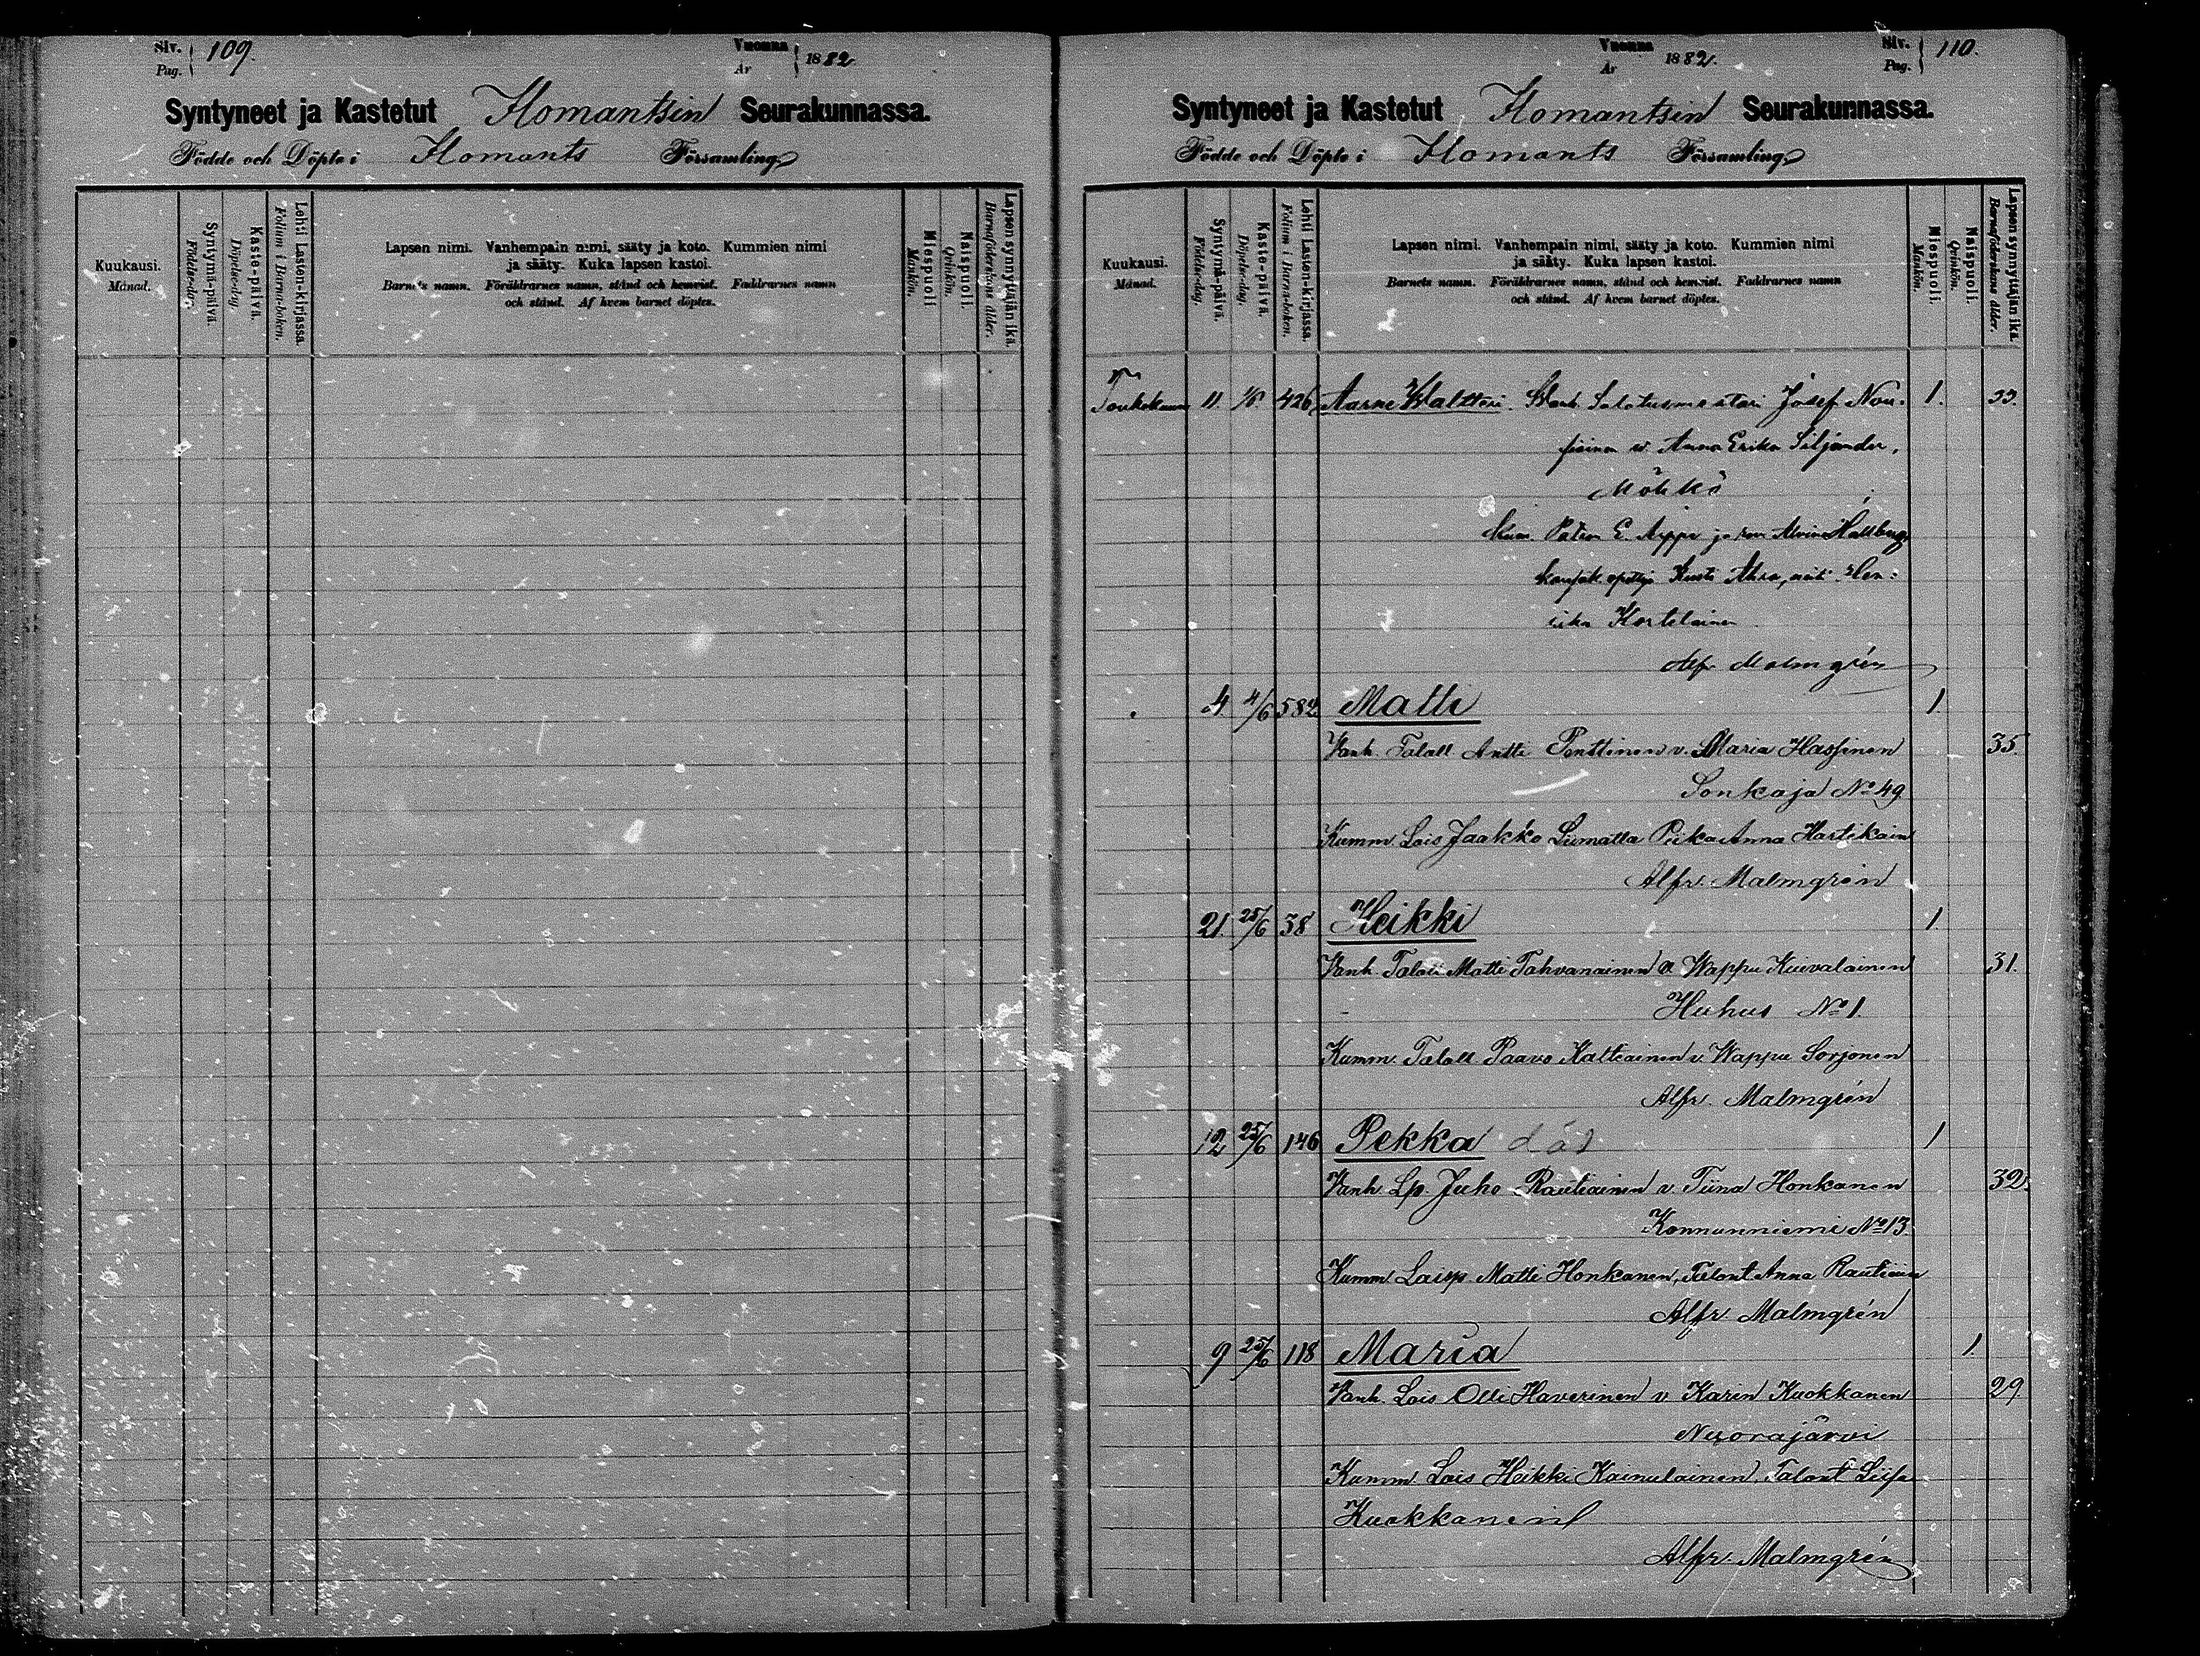 Siv. Pag. 109.
Vuonna År 1882
Syntyneet ja Kastetut Ilomantsin Seurakunnassa.
Födde och Döpte i Ilomants Församling
Kuukausi. Månad.
Syntymä-päivä. Födelse-dag.
Kaste-päivä. Döpelse-dag.
Lehti Lasten-kirjassa. Folium i Barna-boken.
Lapsen nimi. Vanhempain nimi, sääty ja koto. Kummien nimi
ja sääty. Kuka lapsen kastoi.
Barnets namn. Föräldrarnes namn, stånd och hemvist. Faddrarnes namn
och stånd. Af hvem barnet döptes.
Miespuoli. Mankön.
Naispuoli. Qvinkön.
Lapsen synnyttäjän ikä. Barnaföderskans ålder.
Vuonna År 1882.
Siv. Pag. 110.
Syntyneet ja Kastetut Ilomantsin Seurakunnassa.
Födde och Döpte i Ilomants Församling
Kuukausi. Månad.
Syntymä-päivä. Födelse-dag.
Kaste-päivä. Döpelse-dag.
Lehti Lasten-kirjassa. Folium i Barna-boken.
Lapsen nimi. Vanhempain nimi, sääty ja koto. Kummien nimi
ja sääty. Kuka lapsen kastoi.
Barnets namn. Föräldrarnes namn, stånd och hemvist. Faddrarnes namn
och stånd. Af hvem barnet döptes.
Miespuoli. Mankön.
Naispuoli. Qvinkön.
Lapsen synnyttäjän ikä. Barnaföderskans ålder.
Toukokuun 11. 426 Aarne Waltteri. Vanh. Josef Nou- 1. 33.
siainen v. Anna Erika Siljander,
Möhkö
Kum. E. Arppe ja Hallberg
Kusti
rika Kortelainen
Alfr. Malmgrén
4 4/6 582 Matti 1.
Vanh. Talall Antti Penttinen v. Maria Hassinen 35.
Sonkaja No 49
Kumm. Lois Jaakko Liimatta Piika Anna Hartikain
Alfr. Malmgrén
21. 25/6 38 Heikki 1.
Vanh. Taloll Matti Tahvanainen v. Wappu Kuivalainen 31.
Huhus No 1.
Kumm. Talall. Paavo Kaltiainen v. Wappu Sorjonen
Alfr. Malmgrén
12 25/6 146 Pekka död 1
Vanh. Lp. Juho Rautiainen v. Tiina Honkanen 32.
Konnunniemi No 13.
Kumm. Loisp. Matti Honkanen, Talont Anna Rautiain
Alfr. Malmgrén
9 25/6 118 Maria 1.
Vanh. Lois Olli Haverinen v Karin Kuokkanen 29.
Nuorajärvi
Kumm. Lois Heikki Kainulainen, Talont Liisa
Kuokkanen
Alfr. Malmgrén